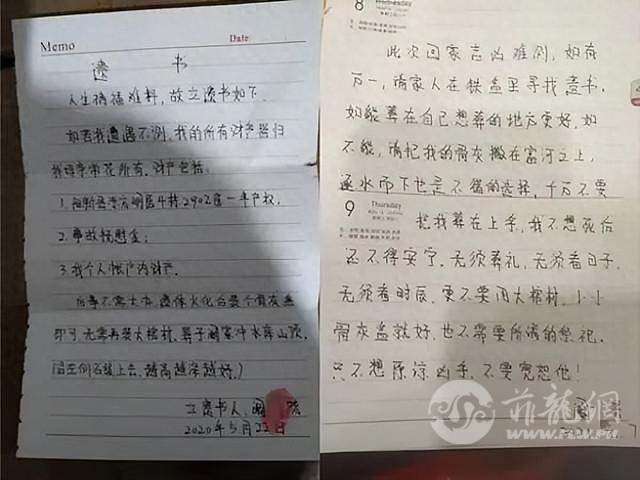 Memo
Date:
遗 书
人生祸福难料,故立遗书如下.
如若我遭遇不测,我的所有财产皆归
所有.财产包括:
2902 一半产权.
2.事故抚慰金;
3.我个人帐户内财产.
后事不需大办,遗体火化后最个骨灰盒
即可,无需再装大棺材,葬于 水库山顶,
越高越深越好.)
立遗书人:
2020年5月22日
8
Wednesday
此次回家吉凶难测,如有
万一,请家人在铁盒里寻找遗书.
如能葬在自己想葬的地方更好,如
不能,请把我的骨灰撒在富河之上,
逐水而下也是不错的选择,千万不要
9
Thursday
把我葬在上手,我不想死后
还不得安宁.无须葬礼,无须看日子,
无须看时辰,更不要用大棺材,小小
骨灰盒就好,也不需要所谓的祭祀.
只不想原谅凶手,不要宽恕他!
前龍網